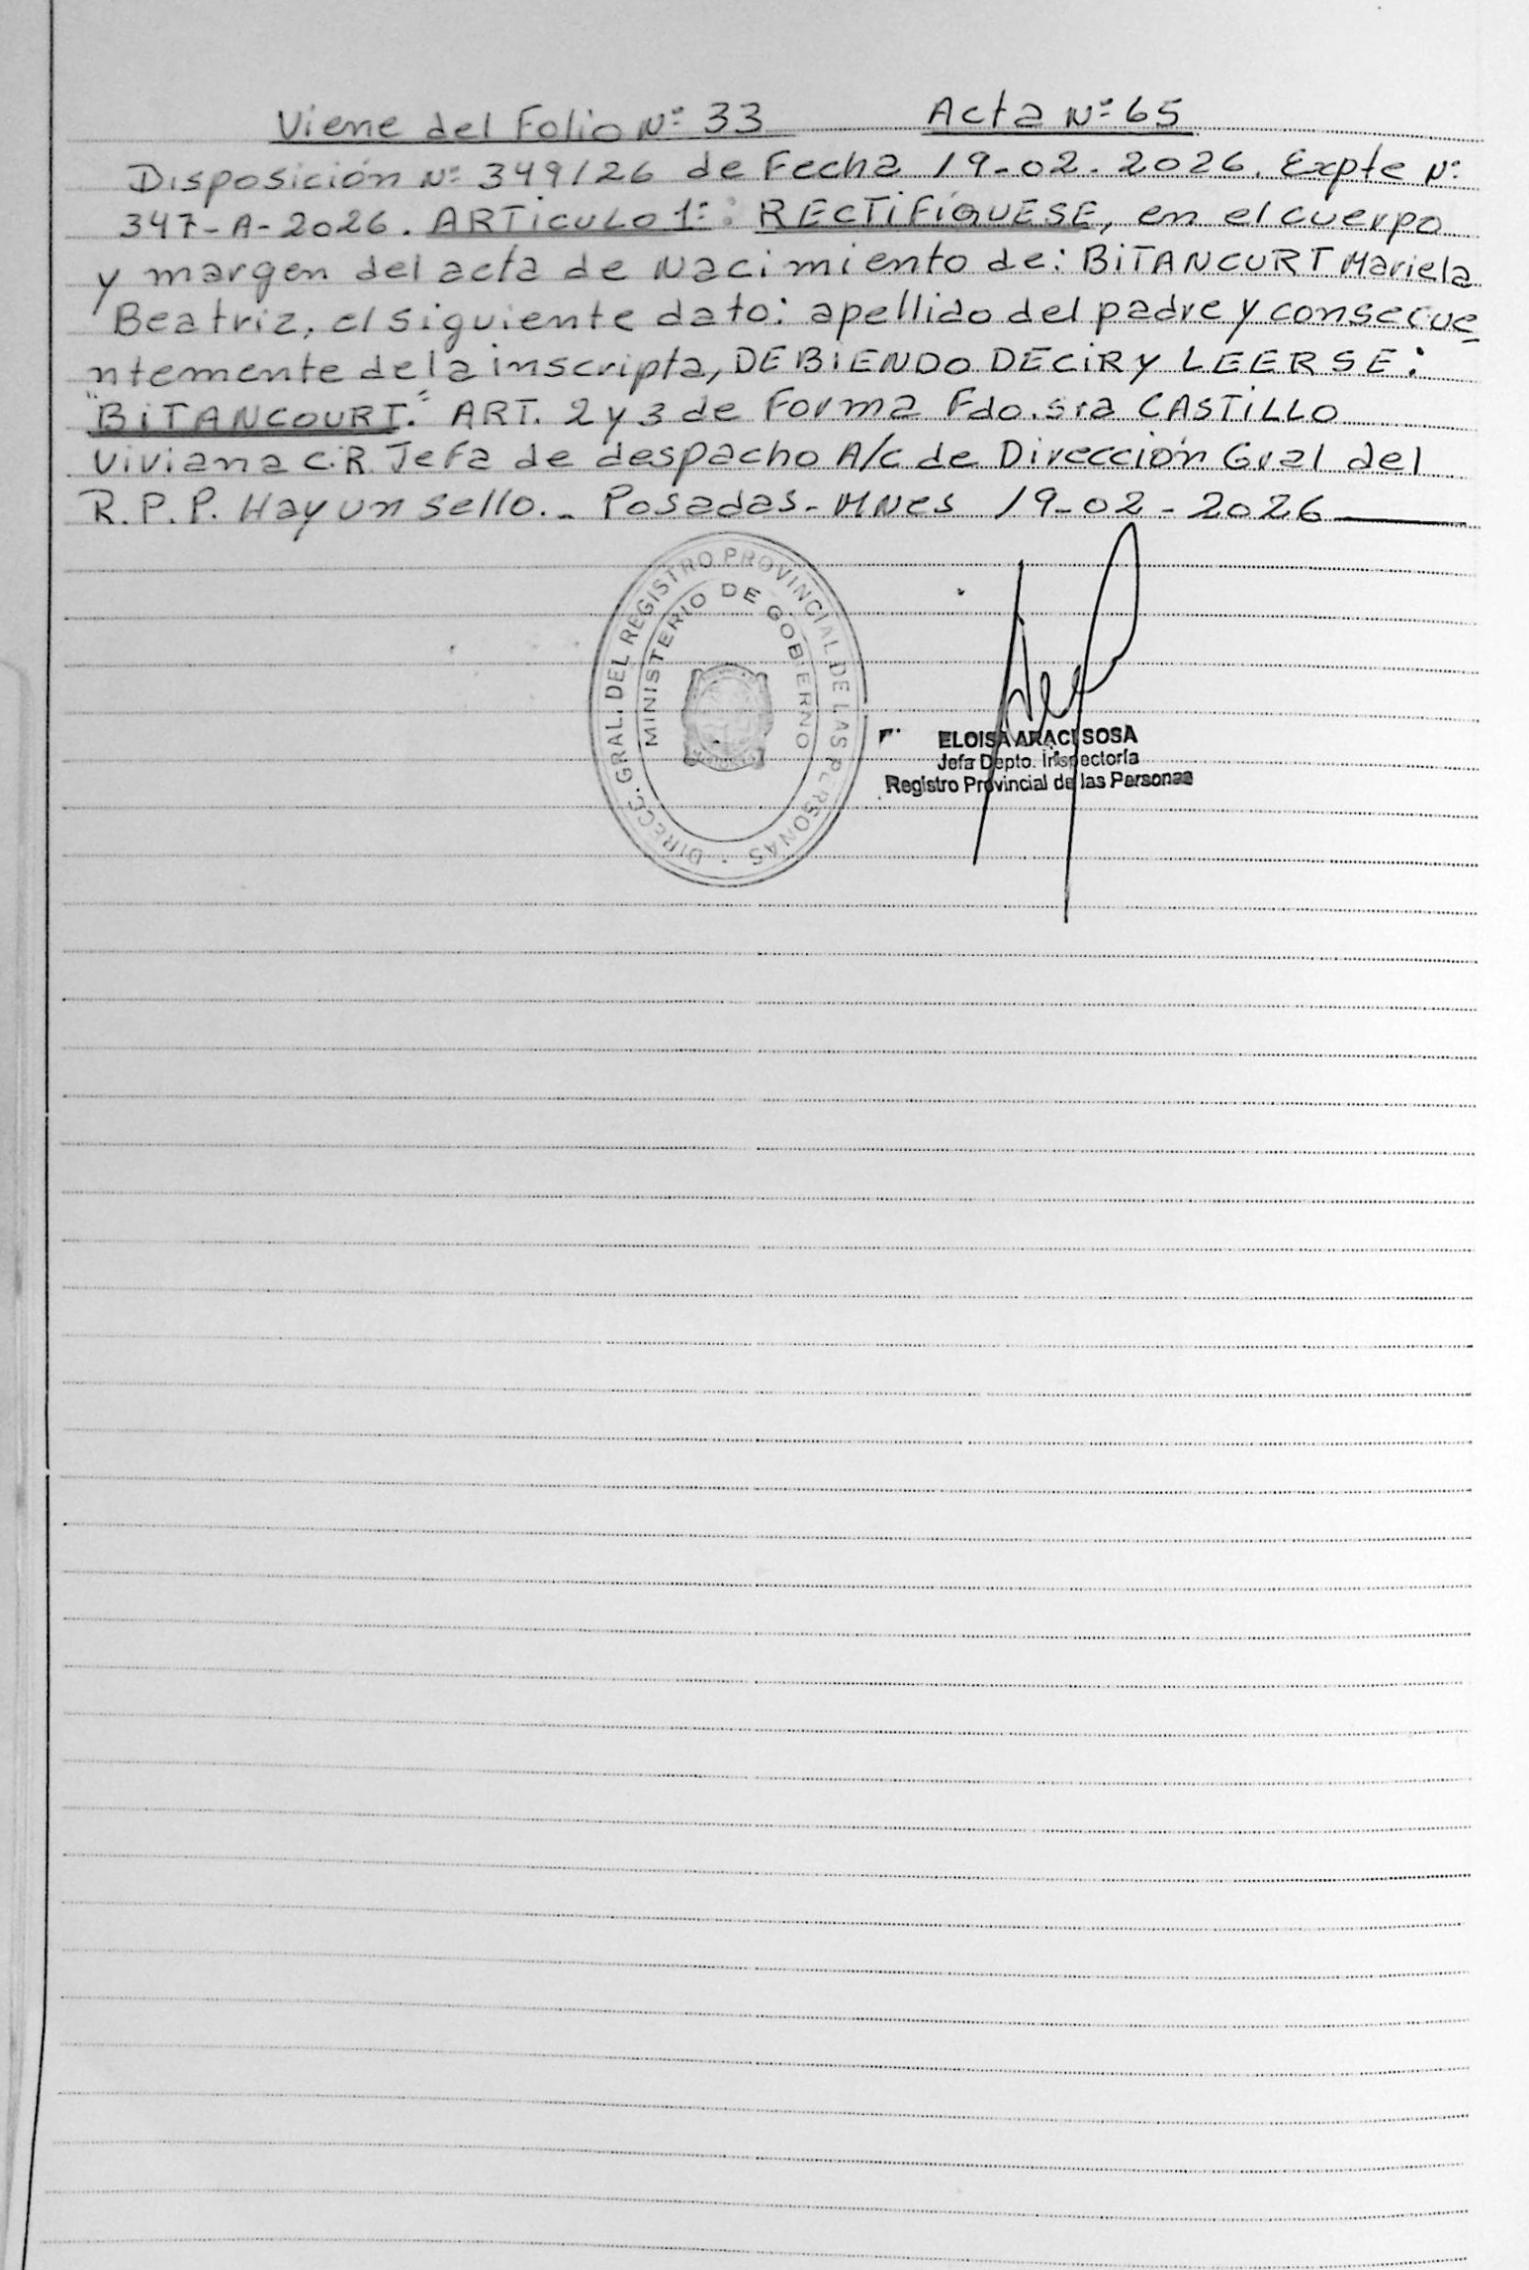 Viene del Folio Nº 33 Acta Nº 65
Disposición Nº 349/26 de Fecha 19-02-2026. Expte Nº
347-A-2026. ARTICULO 1º: RECTIFIQUESE, en el cuerpo
y margen del acta de Nacimiento de: BITANCURT Mariela
Beatriz, el siguiente dato: apellido del padre y consecue
ntemente de la inscripta, DEBIENDO DECIR y LEERSE:
"BITANCOURT." ART. 2 y 3 de Forma Fdo. sra CASTILLO
Viviana C.R Jefa de despacho A/c de Dirección Gral del
R.P.P. Hay un sello._ Posadas-MNes 19-02-2026
DIRECC. GRAL. DEL REGISTRO PROVINCIAL DE LAS PERSONAS
MINISTERIO DE GOBIERNO
ELOISA ARACI SOSA
Jefa Depto. Inspectoría
Registro Provincial de las Personas